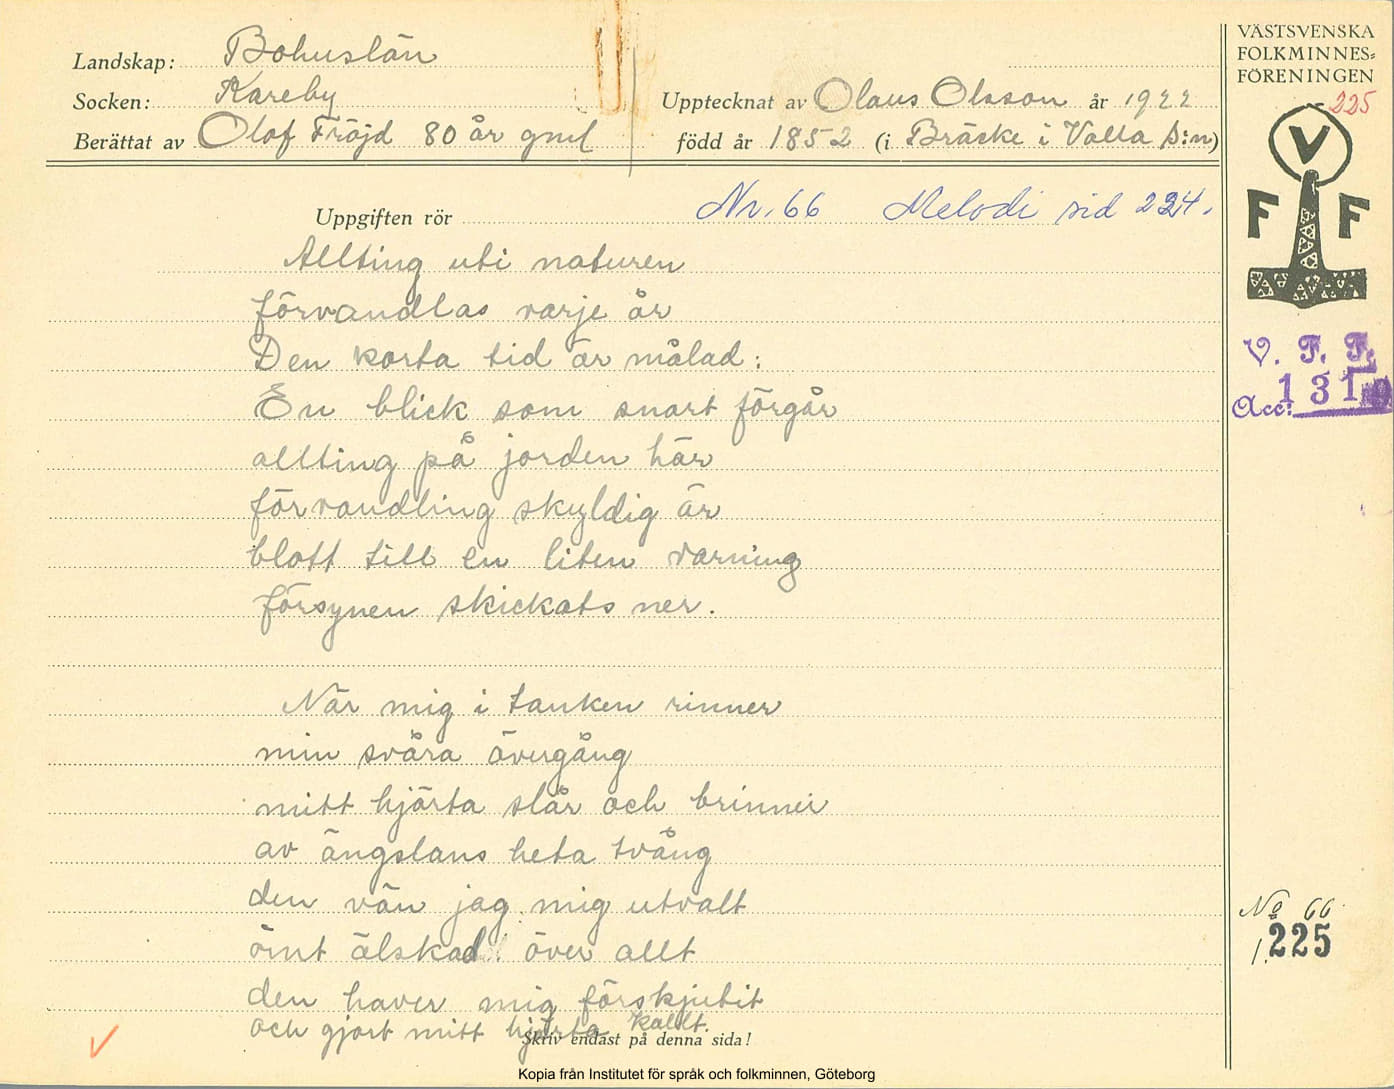 Landskap: Bohuslän
Socken: Kareby
Upptecknat av Olaus Olsson år 1922
Berättat av Olof Fröjd 80 år gml
född år 1852 (i Bräcke i Valla s:n)
VÄSTSVENSKA
FOLKMINNES=
FÖRENINGEN
225
V
F F
Uppgiften rör
Nr. 66 Melodi sid 224.
Allting uti naturen
förvandlas varje år
Den korta tid är målad:
En blick som snart förgår
allting på jorden här
förvandling skyldig är
blott till en liten varning
försynen skickats ner.
V. F. F.
Acc: 131
När mig i tanken rinner
min svåra övergång
mitt hjärta slår och brinner
av ängslans heta tvång
den vän jag mig utvalt
ömt älskad över allt
den haver mig förskjutit
och gjort mitt hjärta kallt.
No 66
1.225
Skriv endast på denna sida!
Kopia från Institutet för språk och folkminnen, Göteborg